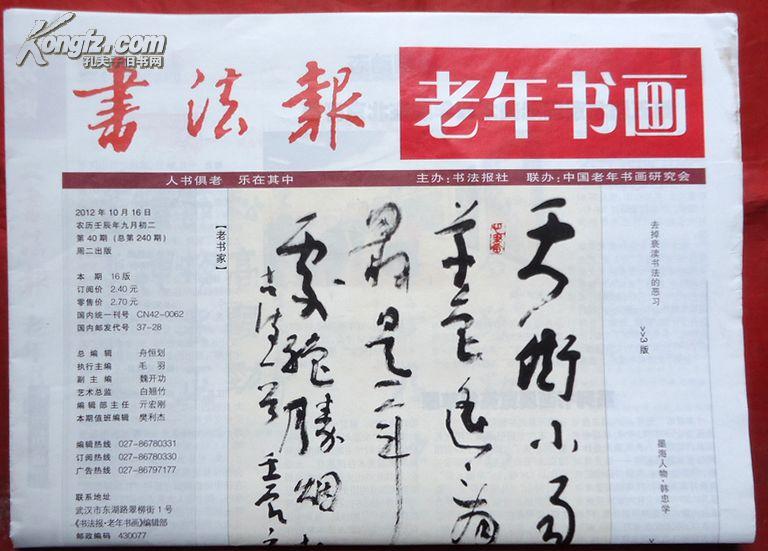 Kongfz.com
孔夫子旧书网
書法報 老年书画
人书俱老 乐在其中 主办:书法报社 联办:中国老年书画研究会
2012年10月16日
农历壬辰年九月初二
第40期(总第240期)
周二出版
本期 16版
订阅价 2.40元
零售价 2.70元
国内统一刊号 CN42-0062
国内邮发代号 37-28
总编辑 舟恒划
执行主编 毛羽
副主编 魏开功
艺术总监 白翘竹
编辑部主任 亓宏刚
本期值班编辑 樊利杰
编辑热线 027-86780331
订阅热线 027-86780330
广告热线 027-86797177
联系地址
武汉市东湖路翠柳街1号
《书法报·老年书画》编辑部
邮政编码 430077
【老书家】
天街小雨
草色遥看
最是一年
处绝胜烟
去掉亵渎书法的恶习
>>3版
墨海人物·韩忠学